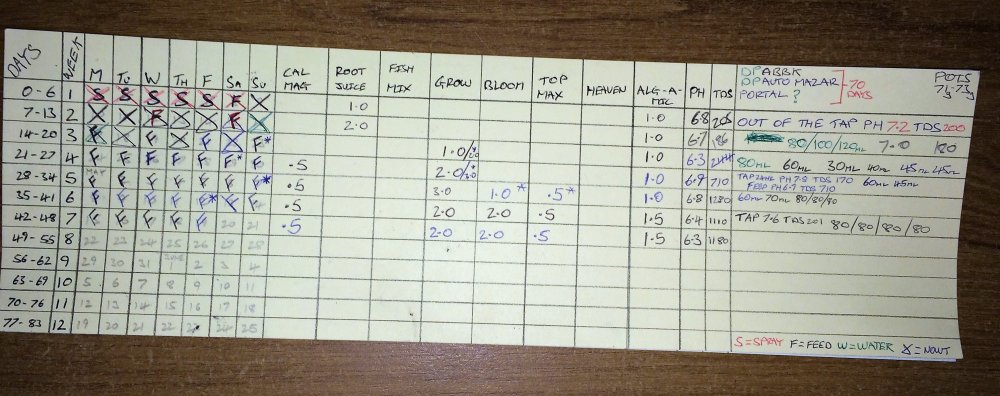 DAYS WEEK M Tu W TH F SA SU CAL MAG ROOT JUICE FISH MIX GROW BLOOM TOP MAX HEAVEN ALG-A-MIC PH TDS
DPABBK
DPAUTO MAZAR
PORTAL ?
70 DAYS
POTS 71-73g
0-6 1 S S S S S F X
7-13 2 X X W X X F X 1.0 1.0 6.8 205 OUT OF THE TAP PH 7.2 TDS 200
14-20 3 F X F X F X F* 2.0 1.0 6.7 186 80/100/120ML 7.0 180
21-27 4 F F F F F F* F .5 1.0/ 1.0 6.3 80ML 60ML 30ML 40ML 45ML 45ML
28-34 5 MAY F F F F F F F* .5 2.0/ 1.0 6.9 710 TAP 24HL PH 7.8 TDS 170 60ML 45ML
FEED PH 6.9 TDS 710
35-41 6 F F F F F* F F .5 3.0 1.0* .5* 1.0 6.8 1280 60ML 70ML 80/80/80
42-48 7 F F F F F 20 21 .5 2.0 2.0 .5 1.5 6.4 1110 TAP 7.6 TDS 201 80/80/80/80
49-55 8 22 23 24 25 26 27 28 2.0 2.0 .5 1.5 6.3 1180
56-62 9 29 30 31 JUNE 1 2 3 4
63-69 10 5 6 7 8 9 10 11
70-76 11 12 13 14 15 16 17 18
77-83 12 19 20 21 22 23 24 25
S=SPRAY F=FEED W=WATER X=NOWT